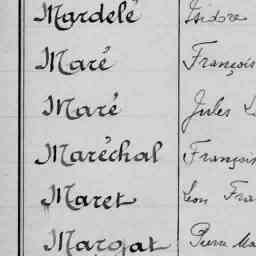 Mardelé Isidore
Maré François
Maré Jules
Maréchal François
Maret Léon Fra
Margat Pierre Ma